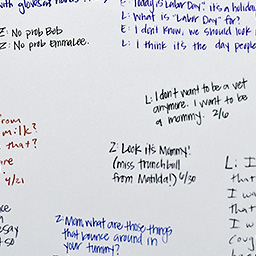 with gloves
Z: No prob Bob
Z: No prob EmmaLee.
E: Today is Labor Day. its a holida
L: What is "Labor Day" for?
E: I don't know, we should look
L: I think it's the day people
L: I don't want to be a vet
anymore. I want to be
a mommy. 2/6
from
milk?
that?
are
4/21
Z: Look its Mommy!
(miss trunchbull
from Matilda!) 4/30
L: I
that
I wa
that
I w
coug
Z: Mom, what are those things
that bounce around in
your tummy?
say
t so